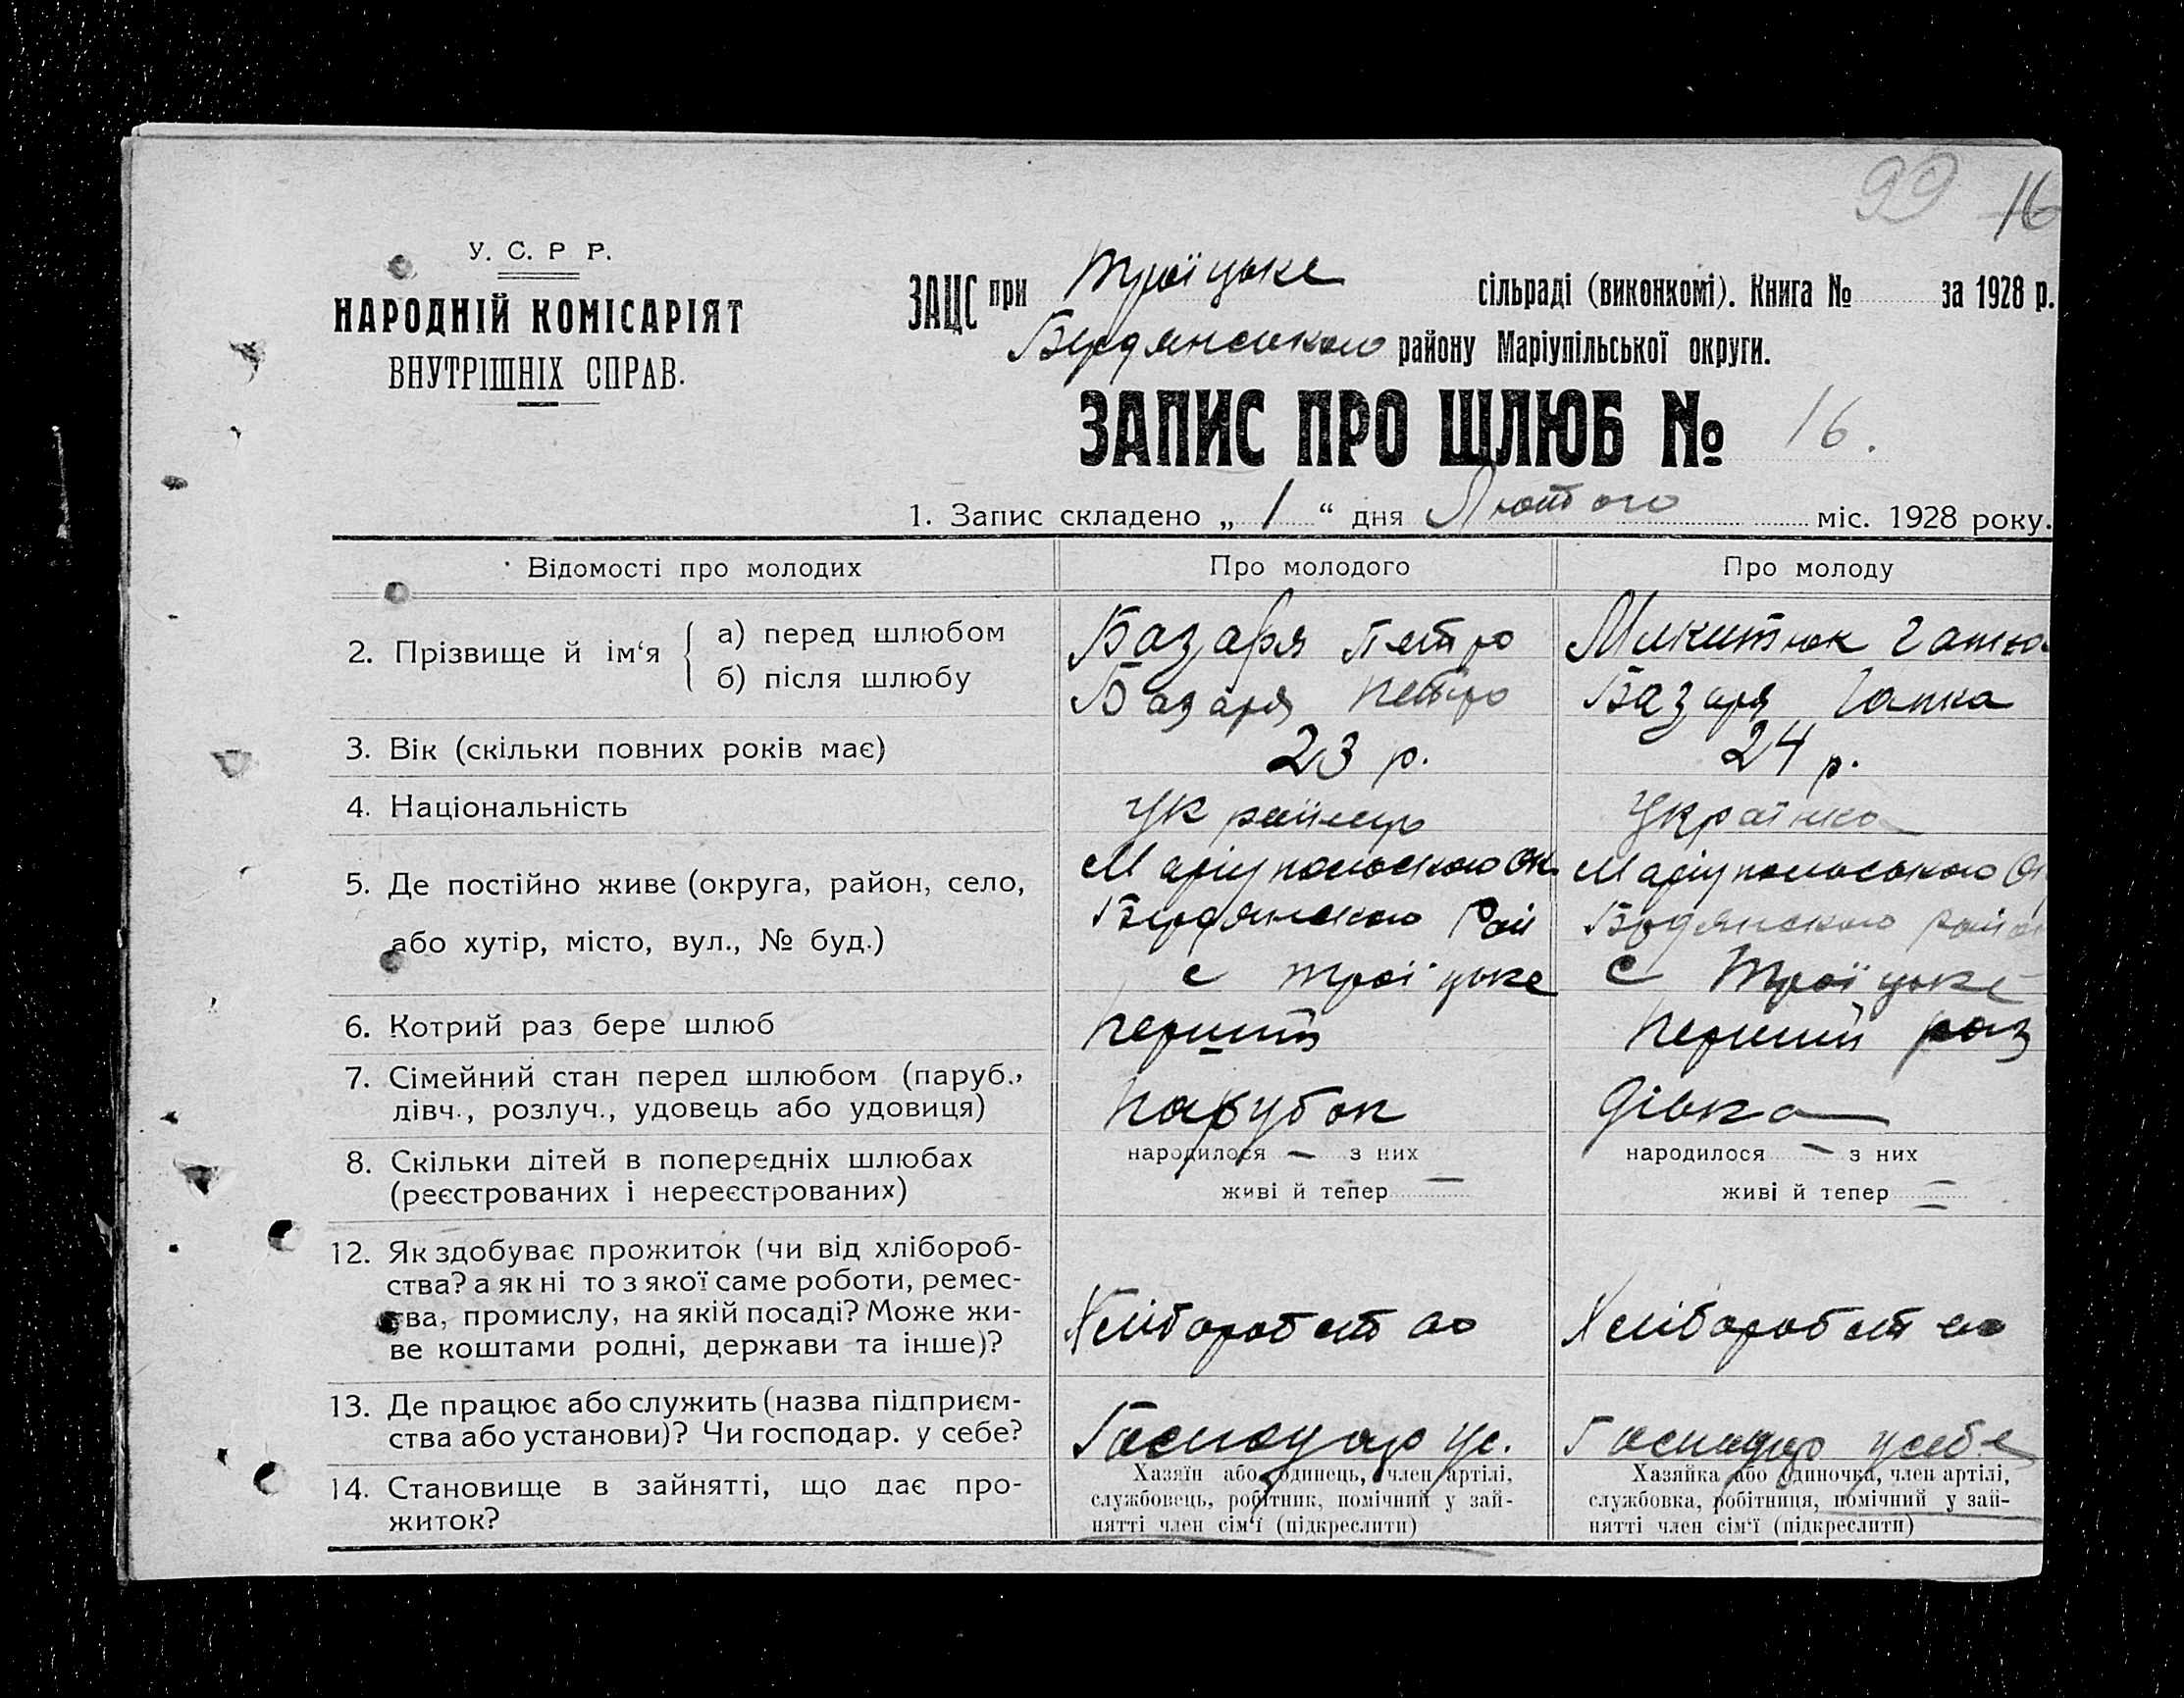 99 16
У. С. Р Р.
НАРОДНІЙ КОМІСАРІЯТ
ВНУТРІШНІХ СПРАВ.
ЗАЦС при Троїцьке сільраді (виконкомі). Книга № за 1928 р.
Бердянського району Маріупільської округи.
ЗАПИС ПРО ШЛЮБ № 16.
1. Запис складено „ 1 “ дня Лютого міс. 1928 року.
Відомості про молодих Про молодого Про молоду
2. Прізвище й ім‘я { а) перед шлюбом Базаря Петро Микитюк Гапка
б) після шлюбу Базаря Петро Базаря Гапка
3. Вік (скільки повних років має) 23 р. 24 р.
4. Національність Українець Українка
5. Де постійно живе (округа, район, село, Маріупольского Ок. Маріупольського Ок
або хутір, місто, вул., № буд.) Бердянского Рай Бердянского район
с Троїцьке с Троїцьке
6. Котрий раз бере шлюб Перший Перший раз
7. Сімейний стан перед шлюбом (паруб., дівч., розлуч., удовець або удовиця) Парубок Дівка
8. Скільки дітей в попередніх шлюбах народилося — з них народилося — з них
(реєстрованих і нереєстрованих) живі й тепер — живі й тепер —
12. Як здобуває прожиток (чи від хлібороб-
ства? а як ні то з якої саме роботи, ремес-
тва, промислу, на якій посаді? Може жи- Хліборобство Хліборобство
ве коштами родні, держави та інше)?
13. Де працює або служить (назва підприєм-
ства або установи)? Чи господар. у себе? Господар ус. Господар усебе
14. Становище в зайнятті, що дає про-
житок?
Хазяїн або одинець, член артілі,
службовець, робітник, помічний у зай-
нятті член сім‘ї (підкреслити)
Хазяйка або одиночка, член артілі,
службовка, робітниця, помічний у зай-
нятті член сім‘ї (підкреслити)